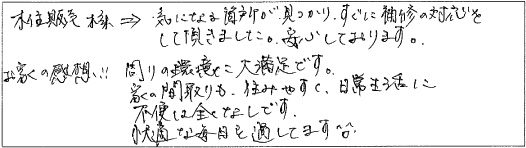 住販 様 ⇒ 気になる箇所が見つかり、すぐに補修の対応を
して頂きました。安心しております。
お家の感想!! 周りの環境に大満足です。
家の間取りも、住みやすく、日常生活に
不便は全くなしです。
快適な毎日を過してます^^